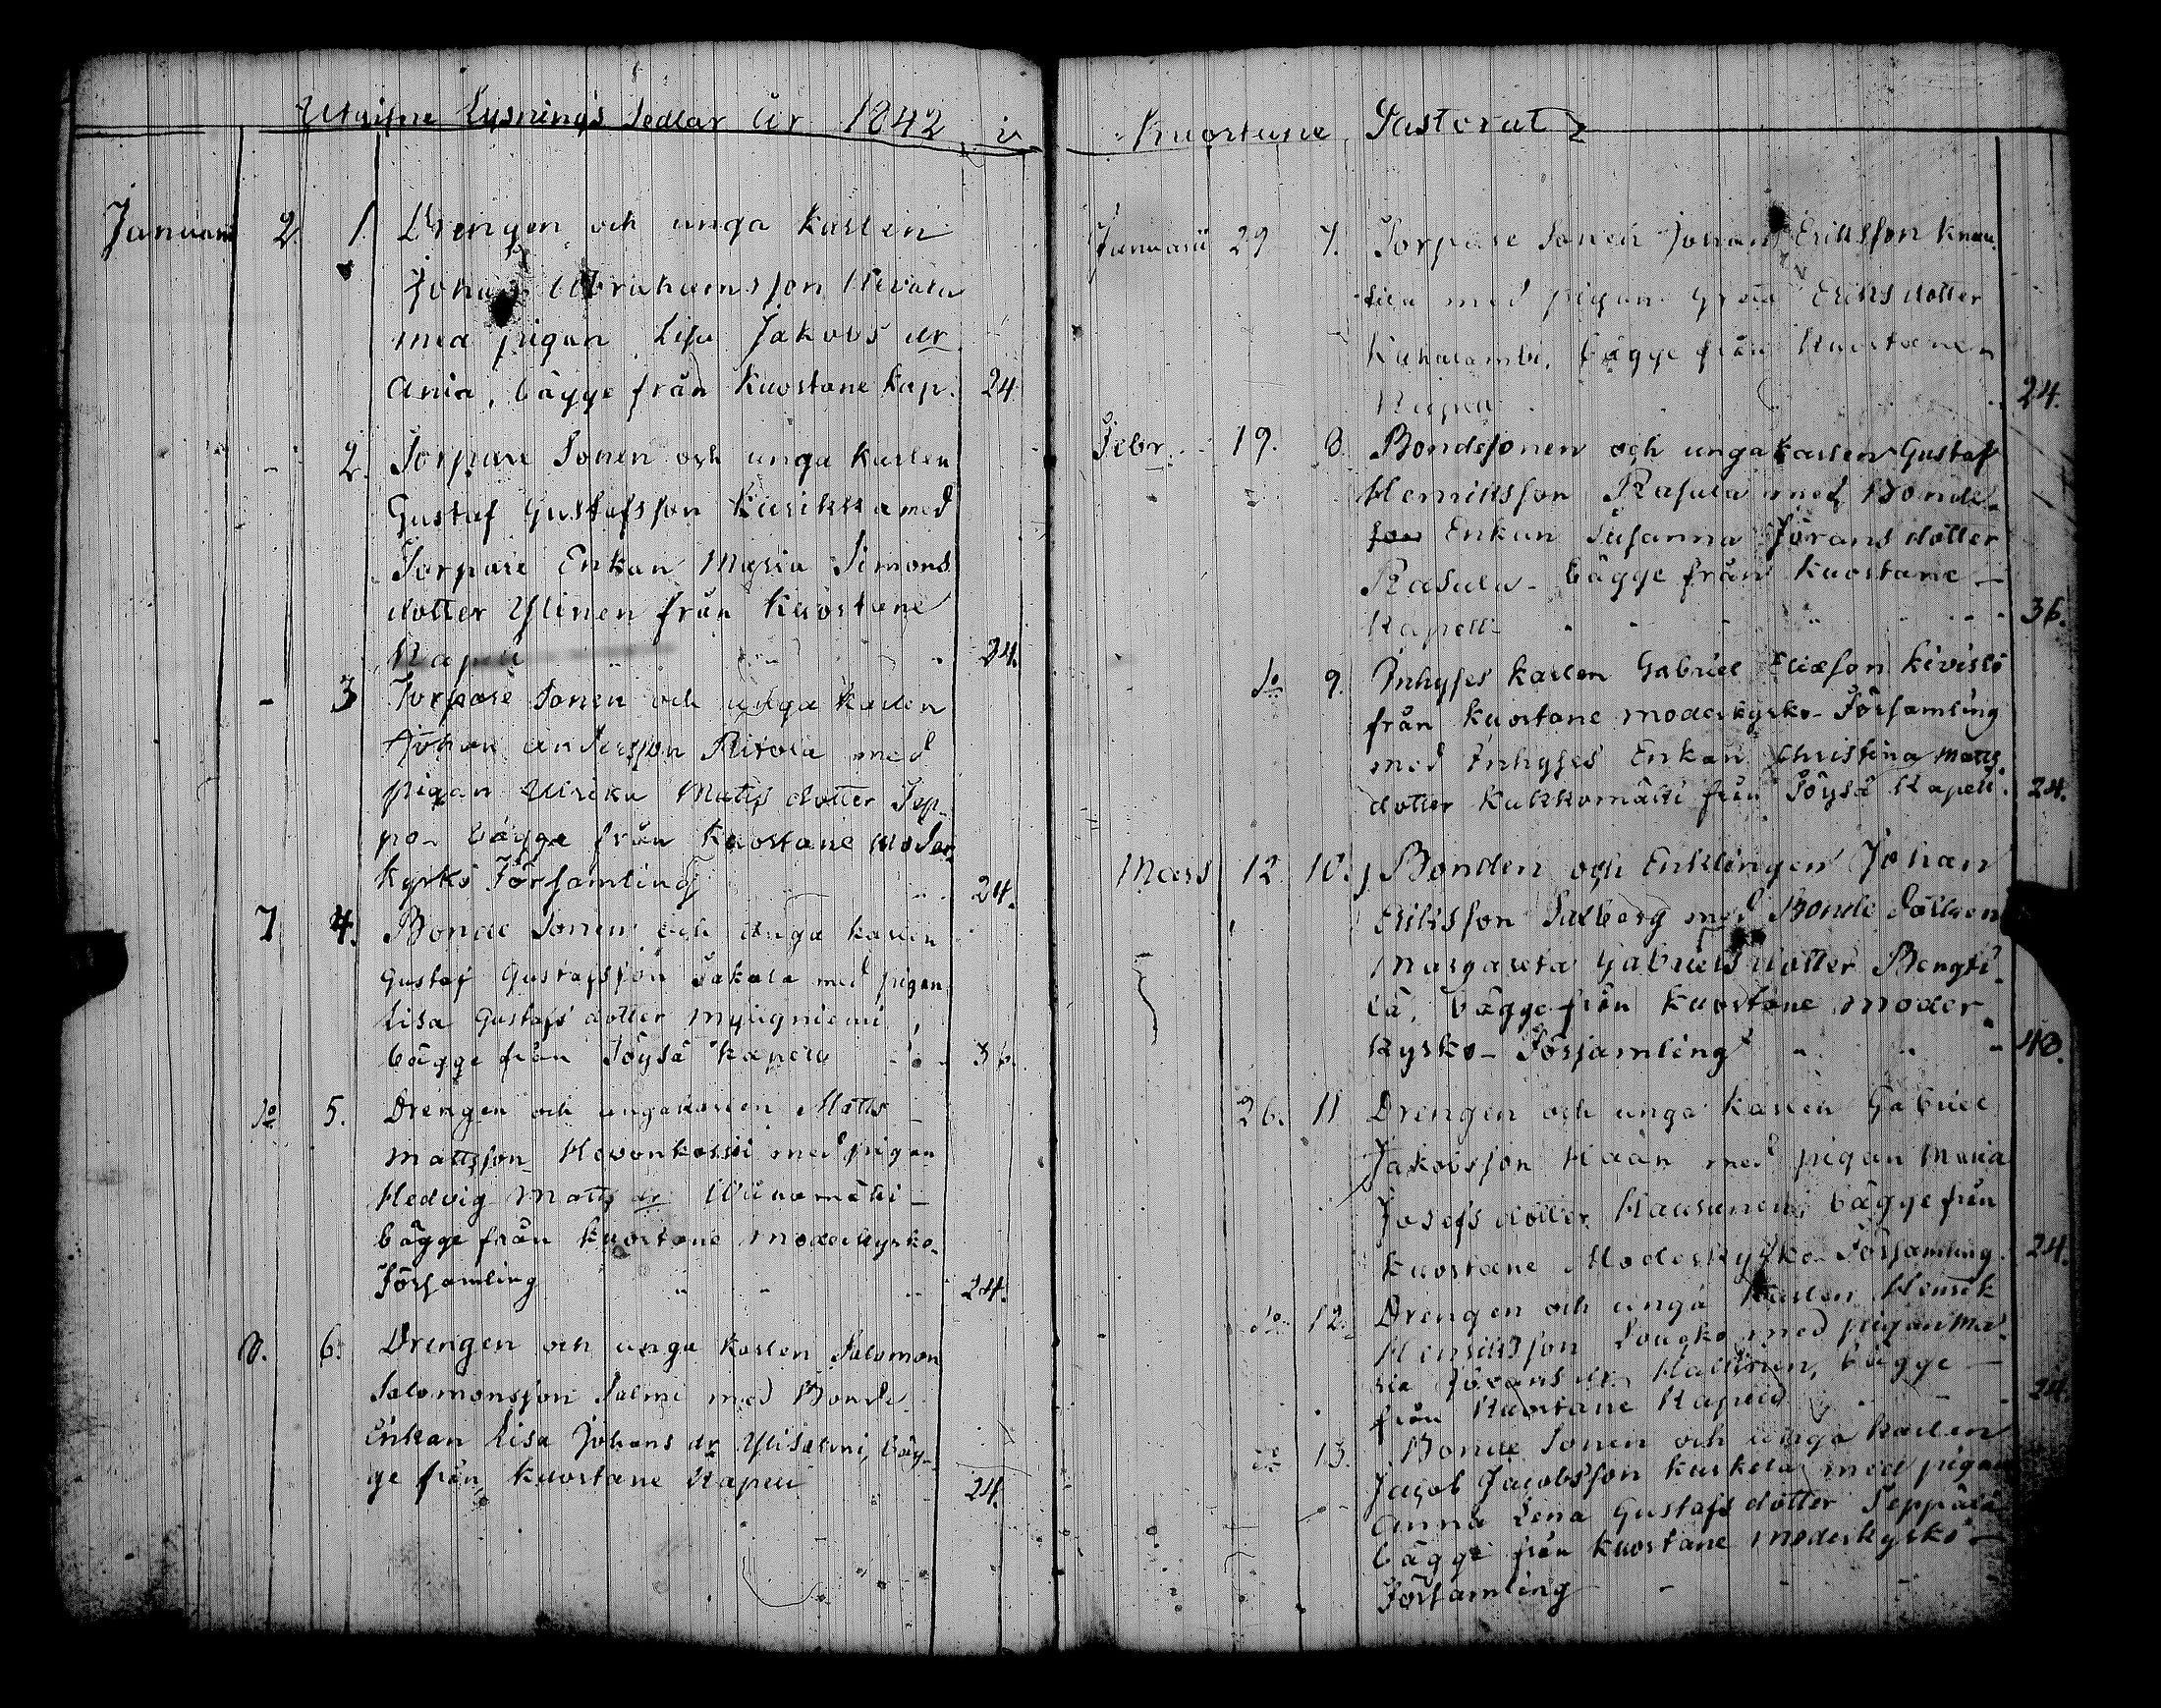 Utgifne Lysnings Sedlar år 1842 i
Januari 2. 1. Drengen och unga karlen
Johan Abrahamsson
med pigan Lisa Jakobs dr
Ania, bägge från Kuortane Kap. 24.
- 2. Torpare Sonen och unga karlen
Gustaf Gustafsson Kurikka med
Torpare Enkan Maria Simons
dotter Ylinen från Kuortane
Kapell 24.
- 3 Torpare Sonen och unga karlen
Johan Andersson Ritola med
pigan Ulrika Matts dotter Sep-
po- bägge från Kuortane moder
kyrko Församling 24.
7 4. Bonde Sonen och unga karlen
Gustaf Gustafsson Sakala med pigan
Lisa Gustafs dotter Myllyniemi,
bägge från Töysä Kapell 36.
do 5. Drengen och ungakarlen Matts
Mattsson Hevonkoski med pigan
Hedvig Matts dr
bägge från Kuortane moderkyrko-
Församling 24.
8. 6. Drengen och unga karlen Salomon
Salomonsson Salmi med Bonde
Enkan Lisa Johans dr Ylisalmi, bäg-
ge från Kuortane Kapell 24.
Kuortane Pastorat
Januarii 29 7. Torpare Sonen Johan Eriksson
med pigan Greta Eriks dotter
Kuhalambi, bägge från Kuortane
Kapell 24.
Febr. 19. 8. Bondesonen och ungakarlen Gustaf
Henriksson Rasula med Bonde-
son Enkan Susanna Jörans dotter
Rasula - bägge från Kuortane -
Kapell 36.
do 9. Inhyses karlen Gabriel Eliæson Kivistö
från Kuortane moderkyrko- Församling
med Inhyses Enkan Christina Matts
dotter Kukkomäki från Töysä Kapell. 24.
Mars 12 10. Bonden och Enklingen Johan
Eriksson Salberg med Bonde Dottren
Margareta Gabriels dotter Bengti-
lä, bägge från Kuortane moder
kyrko- Församling 48.
26. 11 Drengen och unga karlen Gabriel
Jakobsson Haan med pigan Maria
Josefs dotter bägge från
Kuortane Moderkyrko- Församling. 24.
do 12. Drengen och unga karlen Henrik
Henriksson Louko med pigan Ma-
ria Jörans dr. Kallinen, bägge -
från Kuortane Kapell 24.
do 13. Bonde Sonen och unga karlen
Jacob Jacobsson Kaskela med pigan
Anna Lena Gustafs dotter Seppälä
bägge från Kuortane moderkyrko -
Församling